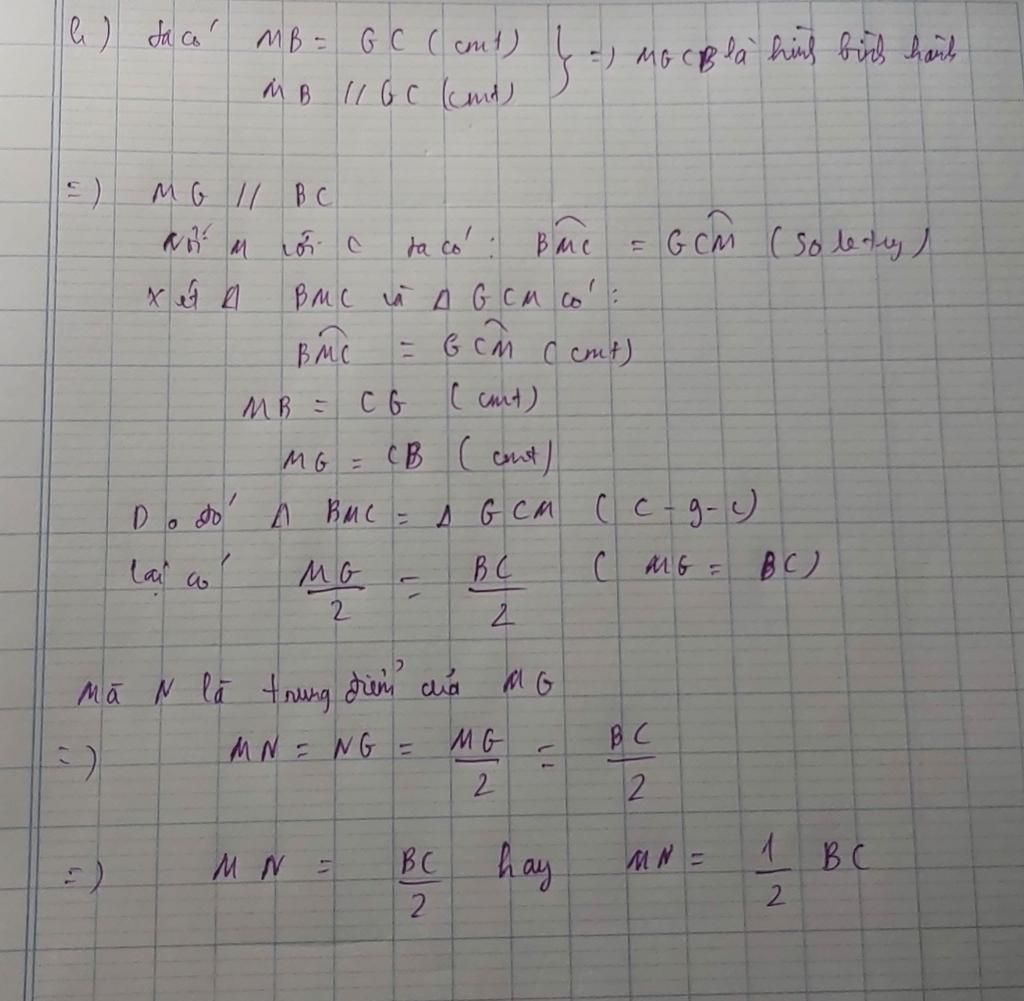 b) ta có MB = GC (cmt) } => MGCB là hình bình hành
MB // GC (cmt)
=) MG // BC
Nối M với C ta có: BMC = GCM (so le trg)
Xét Δ BMC và Δ GCM có:
BMC = GCM (cmt)
MB = CG (cmt)
MG = CB (cmt)
Do đó Δ BMC = Δ GCM (c-g-c)
lại có MG/2 = BC/2 (MG = BC)
Mà N là trung điểm của MG
=) MN = NG = MG/2 = BC/2
=) MN = BC/2 hay MN = 1/2 BC